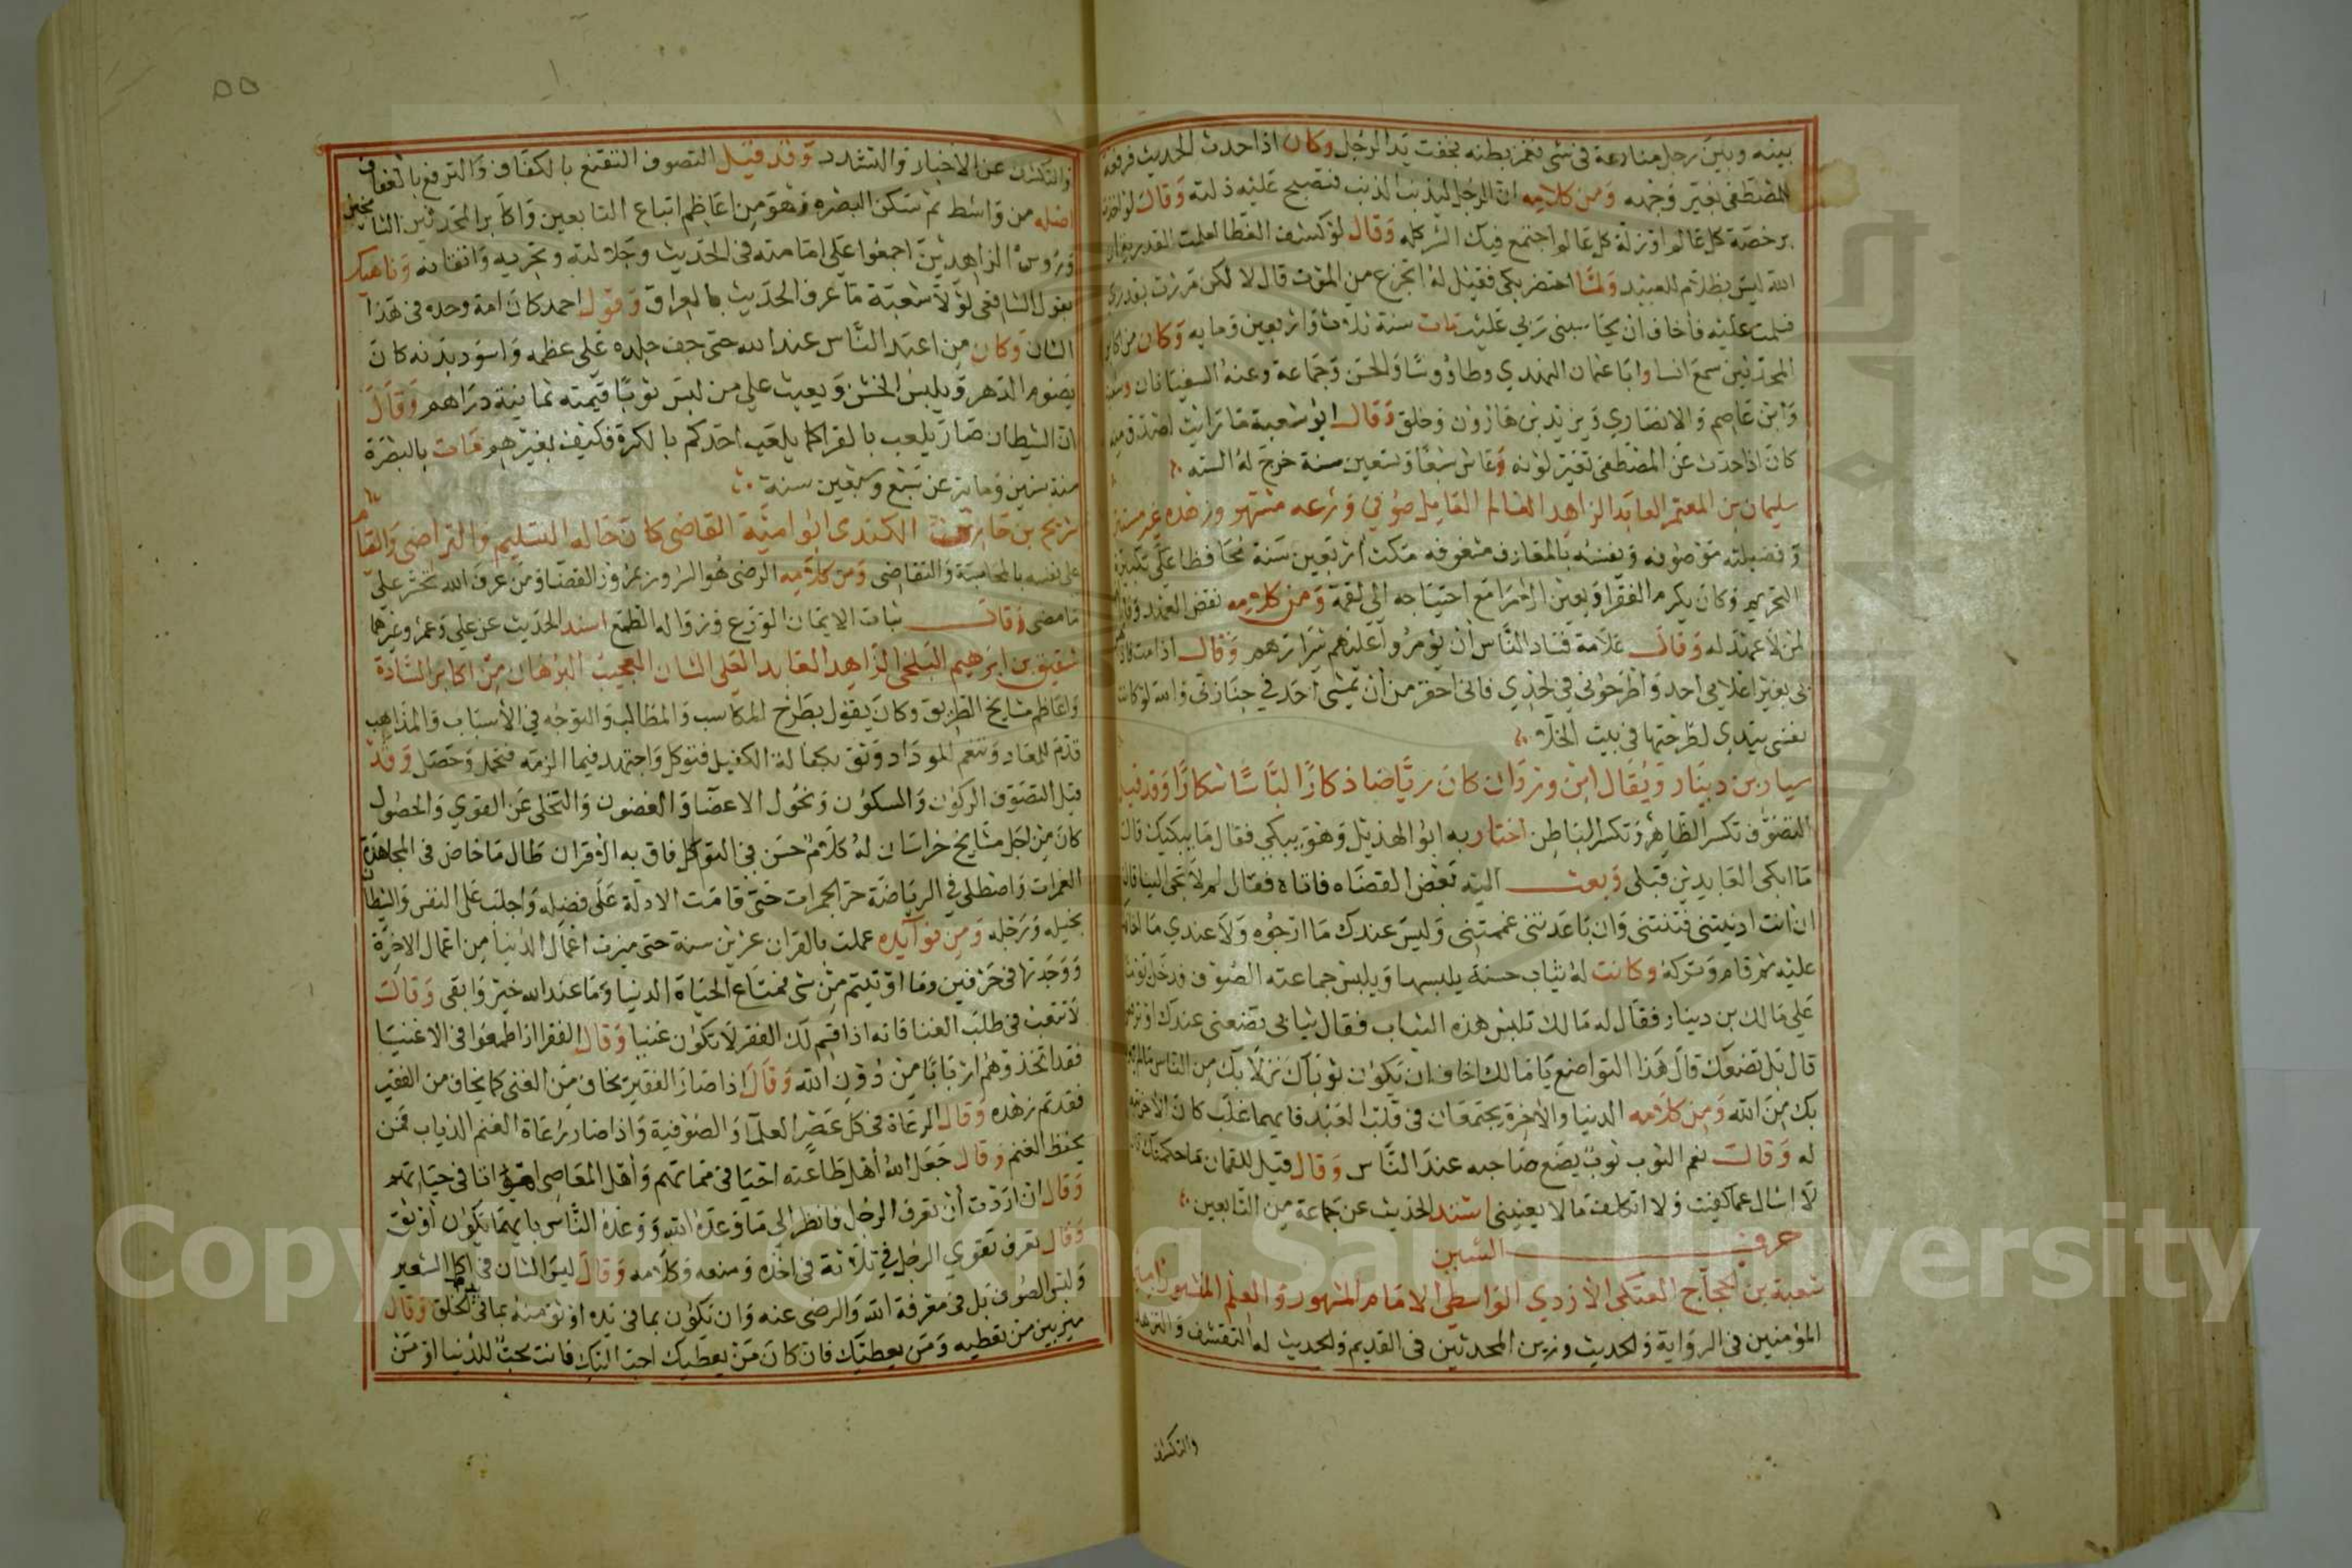 بينه وبين رجل منازعة في شي فغمز بطنه فجفت يد الرجل وكان اذا حدث الحديث فرفعه
للمصطفى تغير وجهه ومن كلامه ان الرجل ليذنب الذنب فتصبح عليه ذلته وقال لو اخذت
برخصة كل عالم او زلة كل عالم اجتمع فيك الشر كله وقال لو كشف الغطا لعلمت القدرية ان
الله ليس بظلام للعبيد ولما احتضر بكى فقيل له اتجزع من الموت قال لا لكن مررت بقدري
فسلمت عليه فأخاف ان يحاسبني ربي عليه مات سنة ثلاث واربعين ومايه وكان من اكابر
المحدثين سمع انسا وابا عثمان النهدي وطاووسا والحسن وجماعة وعنه السفيانان وشعبة
وابن عاصم والانصاري ويزيد بن هارون وخلق وقال ابو شعبة ما رأيت اصدق منه
كان اذا حدث عن المصطفى تغير لونه وعاش سبعا وتسعين سنة خرج له الستة
سليمان بن المعتمر العابد الزاهد العالم العامل صوفي ورعه مشتهر وزهده غير مستتر
وفضيلته موصوفه ونفسه بالمعارف مشغوفه مكث اربعين سنة محافظا على تكبيرة
التحريم وكان يكرم الفقرا ويعين الامرا مع احتياجه الى لقمة ومن كلامه نقض العهد وفا
لمن لا عهد له وقال علامة فساد الناس ان يؤمروا عليهم شرارهم وقال اذا مت فلا
بي بغير اعلامي احد واطرحوني في لحدي فاني احقر من أن يمشي احد في جنازتي والله لو كانت
نفسي بيدي لطرحتها في بيت الخلا
سيار بن دينار ويقال ابن وردان كان رياضا ذكارا لباسا شكارا وقد قيل
التصوف تكسر الظاهر وتكسر الباطن اختار به ابو الهذيل وهو يبكي فقال ما يبكيك قال
ما ابكى العابدين قبلي وبعث اليه بعض القضاه فاتاه فقال لم لا تجي الينا قال
ان انت ادنيتني فتنتني وان باعدتني غممتني وليس عندك ما ارجوه ولا عندي ما اخافك
عليه ثم قام وتركه وكانت له ثياب حسنة يلبسها ويلبس جماعته الصوف فدخل يوما
على مالك بن دينار فقال له مالك تلبس هذه الثياب فقال ثيابي تضعني عندك او ترفعني
قال بل تضعك قال هذا التواضع يا مالك اخاف ان يكون ثوباك نزلا بك من الناس ما لم ينزلا
بك من الله ومن كلامه الدنيا والاخرة يجتمعان في قلب العبد فايهما غلب كان الاخر تبعا
له وقال نعم الثوب ثوب يضع صاحبه عند الناس وقال قيل للقمان ما حكمتك قال
لا اسال عما كفيت ولا اتكلف ما لا يعنيني اسند الحديث عن جماعة من التابعين
حرف الشين
شعبة بن الحجاج العتكي الازدي الواسطي الامام المشهور والعلم المنشور امير
المؤمنين في الرواية والحديث وزين المحدثين في القديم والحديث له التقشف والتزهد
والتكشف
٥٥
والتكشف عن الاخبار والتشدد وقد قيل التصوف التقنع بالكفاف والترفع بالعفاف
اصله من واسط ثم سكن البصره وهو من اعاظم اتباع التابعين واكابر المحدثين الناصحين
ورؤس الزاهدين اجمعوا على امامته في الحديث وجلالته وتحريه واتقانه وناهيك
بقول الشافعي لولا شعبة ما عرف الحديث بالعراق وقول احمد كان امة وحده في هذا
الشان وكان من اعبد الناس عبد الله حتى جف جلده على عظمه واسود بدنه كان
يصوم الدهر ويلبس الخشن ويعيب على من لبس ثوبا قيمته ثمانية دراهم وقال
ان الشيطان صار يلعب بالقرا كما يلعب احدكم بالكرة فكيف بغيرهم مات بالبصرة
سنة ستين ومايه عن سبع وسبعين سنة
شريح بن حارث الكندي ابو امية القاضي كان حاله التسليم والتراضي والقيام
على نفسه بالمحاسبة والتقاضي ومن كلامه الرضى هو السرور بمرور القضا ومن عرف الله لم يتحسر على
ما مضى وقال ثبات الايمان الورع وزواله الطمع اسند الحديث عن علي وعمر وغيرهما
شقيق بن ابرهيم البلخي الزاهد العابد العلي الشان العجيب البرهان من اكابر السادة
واعاظم مشايخ الطريق وكان يقول بطرح المكاسب والمطالب والتوجه في الأسباب والمذاهب
قدم للمعاد وتنعم بالوداد وثق بكفالة الكفيل فتوكل واجتهد فيما الزمه فتحمل وحصل وقد
قيل التصوف الركون والسكون ونحول الاعضا والغضون والتخلي عن القوي والحصول
كان من اجل مشايخ خراسان له كلام حسن في التوكل فاق به الاقران طال ما خاض في المجاهدة
الغمرات واصطلى في الرياضة حر الجمرات حتى قامت الادلة على فضله واجلب على النفس والشيطان
بخيله ورجله ومن فوايده عملت بالقران عشرين سنة حتى ميزت اعمال الدنيا من اعمال الاخرة
ووجدتها في حرفين وما اوتيتم من شي فمتاع الحياة الدنيا وما عند الله خير وابقى وقال
لا تتعب في طلب الغنا فانه اذا قسم لك الفقر لا تكون غنيا وقال الفقرا اذا طمعوا في الاغنيا
فقد اتخذوهم اربابا من دون الله وقال اذا صار الفقير يخاف من الغنى كما يخاف من الفقر
فقد تم زهده وقال الرعاة في كل عصر العلما والصوفية واذا صار رعاة الغنم الذياب فمن
يحفظ الغنم وقال جعل الله أهل طاعته احيا في مماتهم واهل المعاصي امواتا في حياتهم
وقال ان اردت أن تعرف الرجل فانظر الى ما وعده الله ووعده الناس بايهما يكون اوثق
وقال تعرف تقوي الرجل في ثلاثة في اخذه ومنعه وكلامه وقال ليس الشان في اكل الشعير
ولبس الصوف بل في معرفة الله والرضى عنه وان تكون بما في يده اوثق منه بما في يد الخلق وقال
ميز بين من تعطيه ومن يعطيك فان كان من يعطيك احب اليك فانت محب للدنيا او من